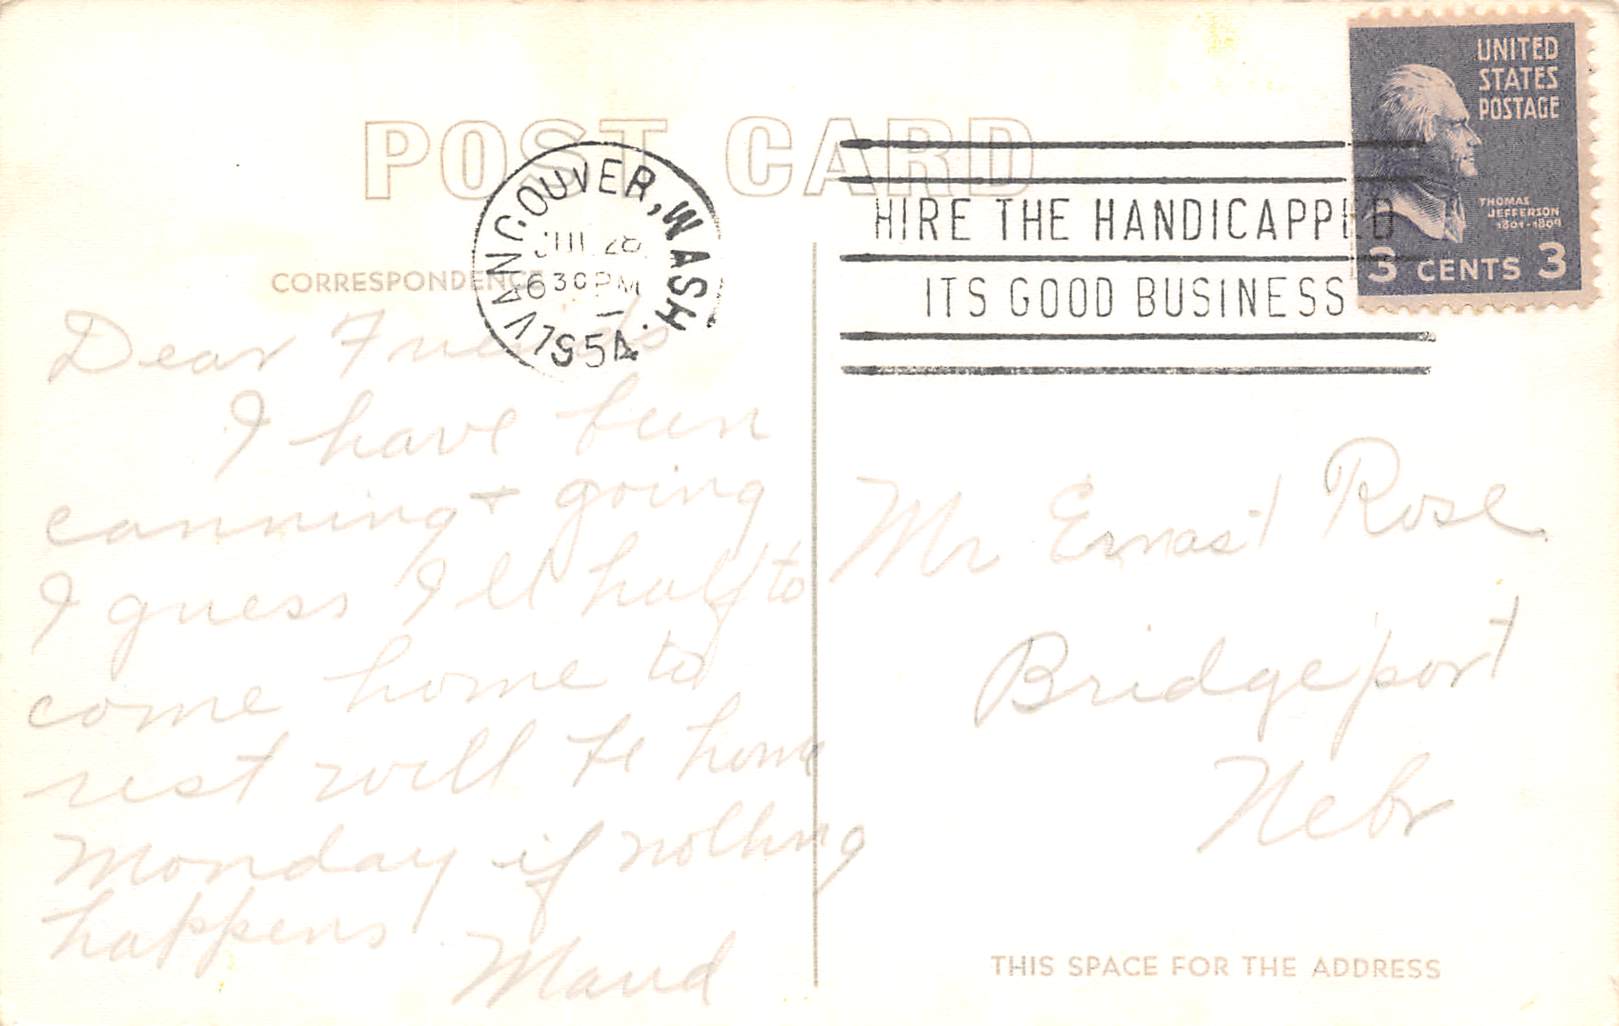 POST CARD
CORRESPONDENCE
VANCOUVER, WASH.
JUL 28
630 PM
1954
HIRE THE HANDICAPPED
ITS GOOD BUSINESS
UNITED
STATES
POSTAGE
THOMAS
JEFFERSON
1801-1809
3 CENTS 3
Dear Friends
I have been
canning + going
I guess I ell half to
come home to
rest will be home
Monday if nothing
happens
Maud
Mr Ernast Rose
Bridgeport
Nebr
THIS SPACE FOR THE ADDRESS